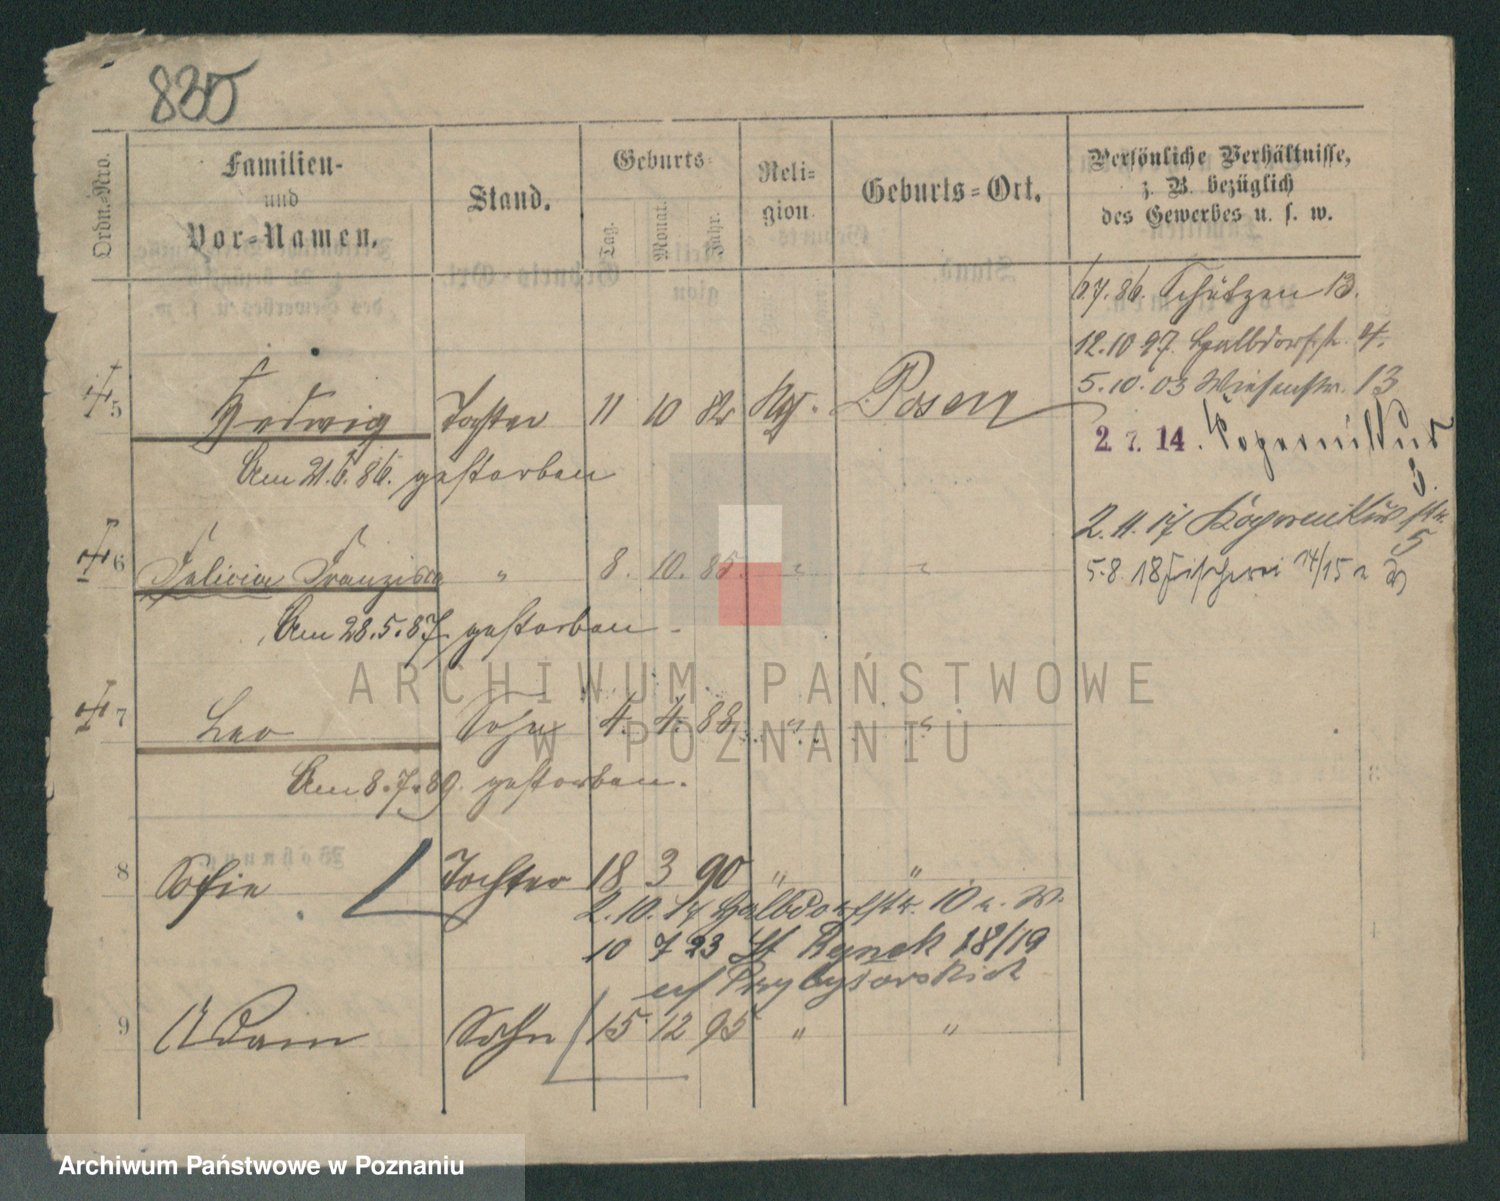 835
Ordn.-Nro.
Familien-
und
Vor-Namen.
Stand.
Geburts-
Tag.
Monat.
Jahr.
Reli-
gion.
Geburts-Ort.
Persönliche Verhältnisse,
z. B. bezüglich
des Gewerbes u. s. w.
Schützen 13.
12.10 97. Halbdorfstr. 4.
5.10.03 Wiesenstr. 13
5 Hedwig Tochter 11 10 82 Posen
2.7.14. Kopernikus
Am 21.6.86. gestorben
5.
2.11.17 Kopernikusstr.
5
6 Felicia Franziska " 8. 10. 85. " "
5.8.18 Fischerei 14/15
Am 28.5.87. gestorben.
7 Leo Sohn 4. 4. 88. " "
Am 8.7.89. gestorben.
8 Sofie Tochter 18 3 90 " "
2.10.17 Halbdorfstr. 10
10 7 23 St Rynek 18/19
9 Adam Sohn 15 12 95 " "
ARCHIWUM PAŃSTWOWE
W POZNANIU
Archiwum Państwowe w Poznaniu